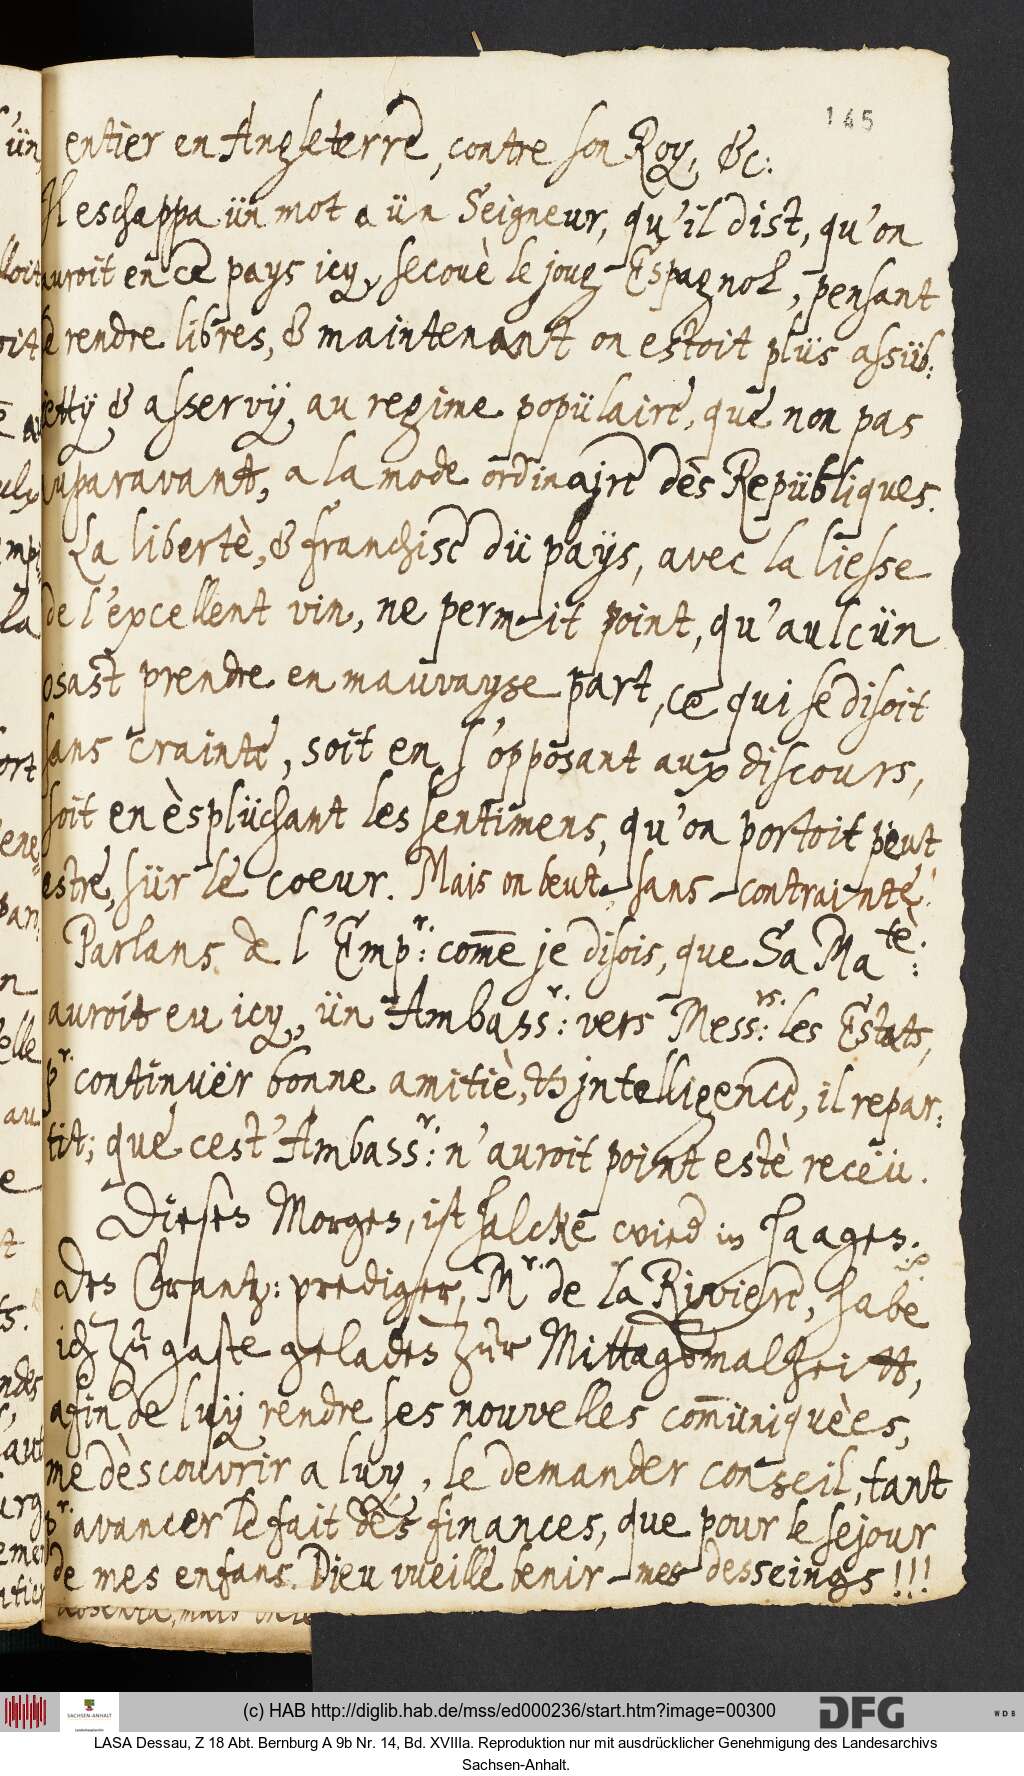 145
entièr en Angleterre, contre son Roy, &c:
Il eschappa ün mot a ün Seigneur, qu'il dist, qu'on
auroit en ce pays icy, secouè le joug Espagnol, pensant
se rendre libres, & maintenant on estoit plüs assüb:
jettÿ & asservÿ au regime popülaire, que non pas
auparavant, a la mode ordinajre dès Repübliques.
La libertè, & franchise dü paÿs, avec la liesse
de l'excellent vin, ne permeit point, qu'aulcün
osast prendre en mauvayse part, ce qui se disoit
sans crainte, soit en s'opposant aux discours,
soit en èsplüchant les sentimens, qu'on portoit peut
estre, sür le coeur. Mais on beut sans contrainte.
Parlans de l'Emp.r: com̄e je disois, que Sa Ma.tè:
auroit eu icy, ün Ambass.r: vers Mess.rs: les Estats,
p.r continuër bonne amitiè, & jntelligence, il repar:
tit; que cest' Ambass.r: n'auroit point estè receü.
Diesen Morgen, ist Halcke wied in Haagen.
Den Frantz: prediger, M.r de la Riviere, habe
ich zu gaste geladen zur Mittagsmalzeitt,
afin de luÿ rendre ses nouvelles com̄üniquèes,
me dèscouvrir a luy, le demander conseil, tant
p.r avancer le fait des finances, que pour le sejour
de mes enfans. Dieu vueille benir mes desseings!!!
(c) HAB http://diglib.hab.de/mss/ed000236/start.htm?image=00300
SACHSEN-ANHALT
DFG
WDB
LASA Dessau, Z 18 Abt. Bernburg A 9b Nr. 14, Bd. XVIIIa. Reproduktion nur mit ausdrücklicher Genehmigung des Landesarchivs
Sachsen-Anhalt.